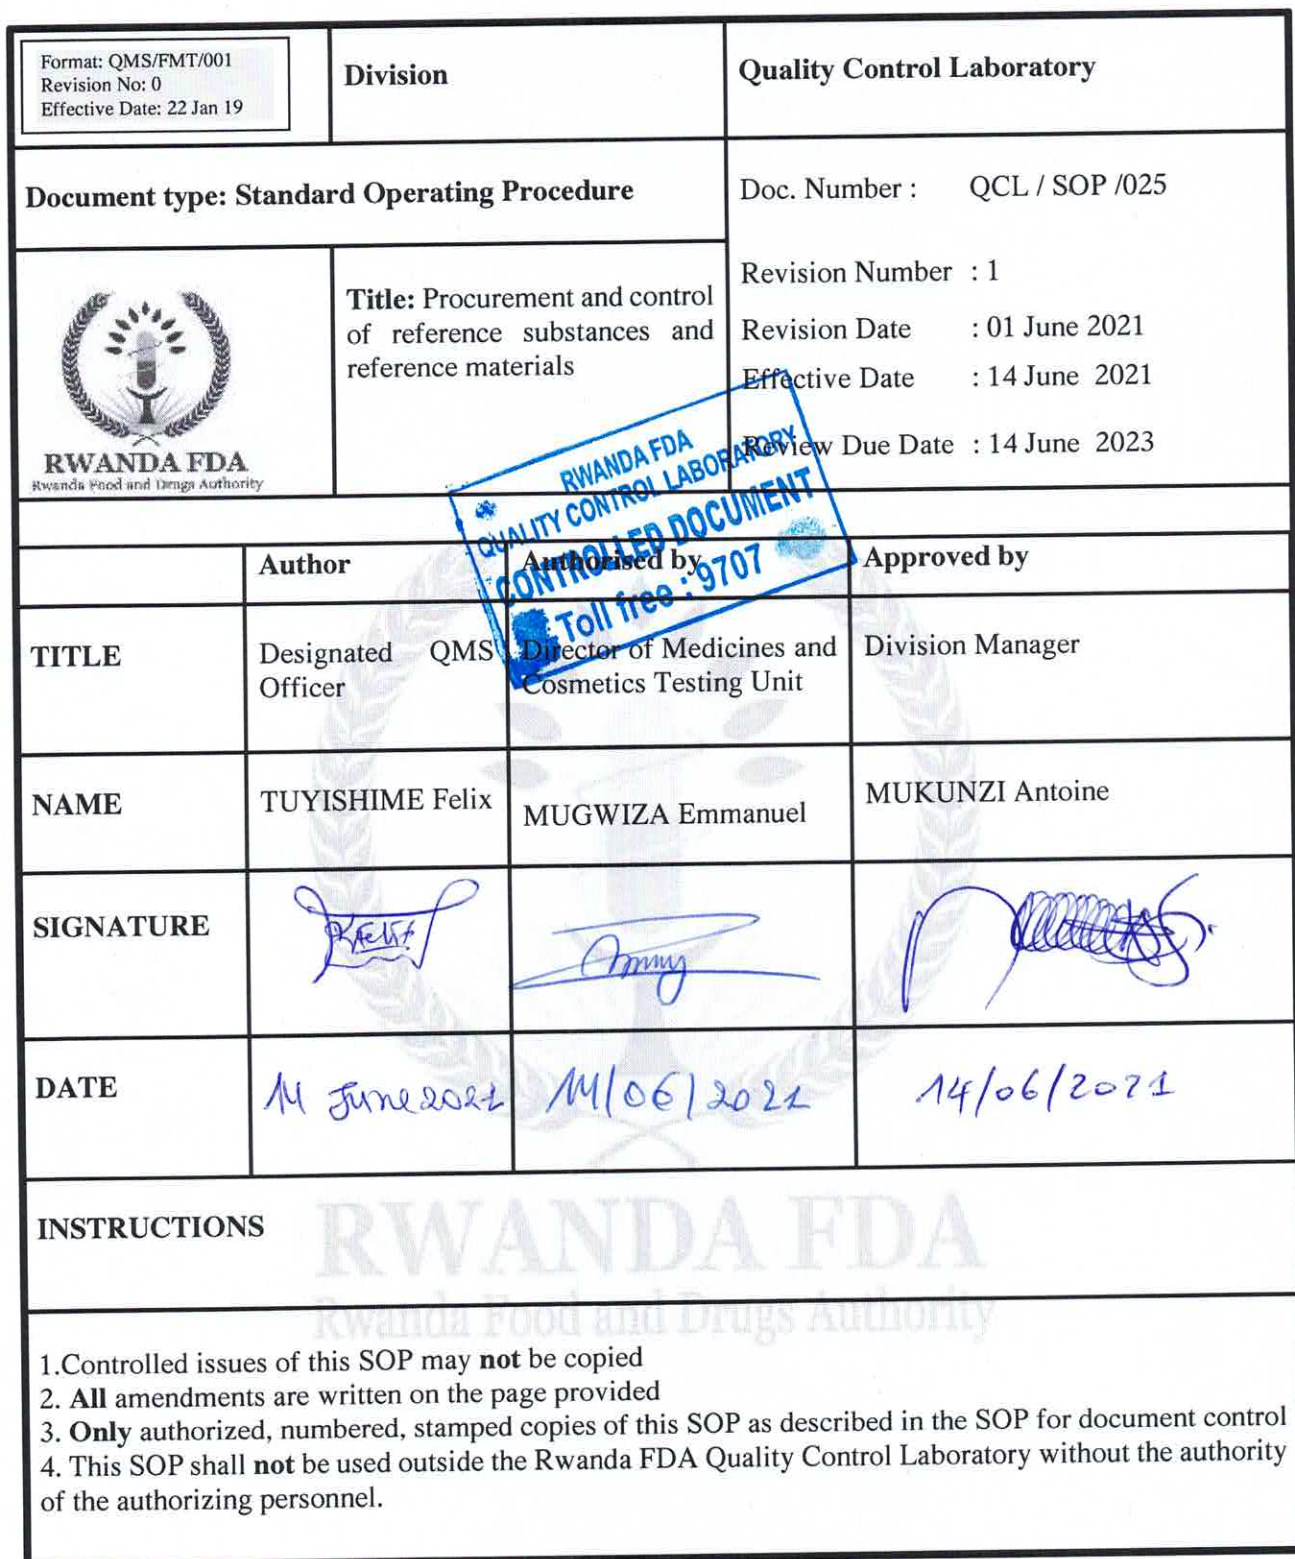 Format: QMS/FMT/001
Revision No: 0
Effective Date: 22 Jan 19
Division
Quality Control Laboratory
Document type: Standard Operating Procedure
Doc. Number : QCL / SOP /025
RWANDA FDA
Rwanda Food and Drugs Authority
Title: Procurement and control
of reference substances and
reference materials
Revision Number : 1
Revision Date : 01 June 2021
Effective Date : 14 June 2021
Review Due Date : 14 June 2023
RWANDA FDA
QUALITY CONTROL LABORATORY
CONTROLLED DOCUMENT
Toll free : 9707
Author
Authorised by
Approved by
TITLE
Designated QMS
Officer
Director of Medicines and
Cosmetics Testing Unit
Division Manager
NAME
TUYISHIME Felix
MUGWIZA Emmanuel
MUKUNZI Antoine
SIGNATURE
DATE
14 June 2021
14/06/2021
14/06/2021
INSTRUCTIONS
RWANDA FDA
Rwanda Food and Drugs Authority
1.Controlled issues of this SOP may not be copied
2. All amendments are written on the page provided
3. Only authorized, numbered, stamped copies of this SOP as described in the SOP for document control
4. This SOP shall not be used outside the Rwanda FDA Quality Control Laboratory without the authority
of the authorizing personnel.